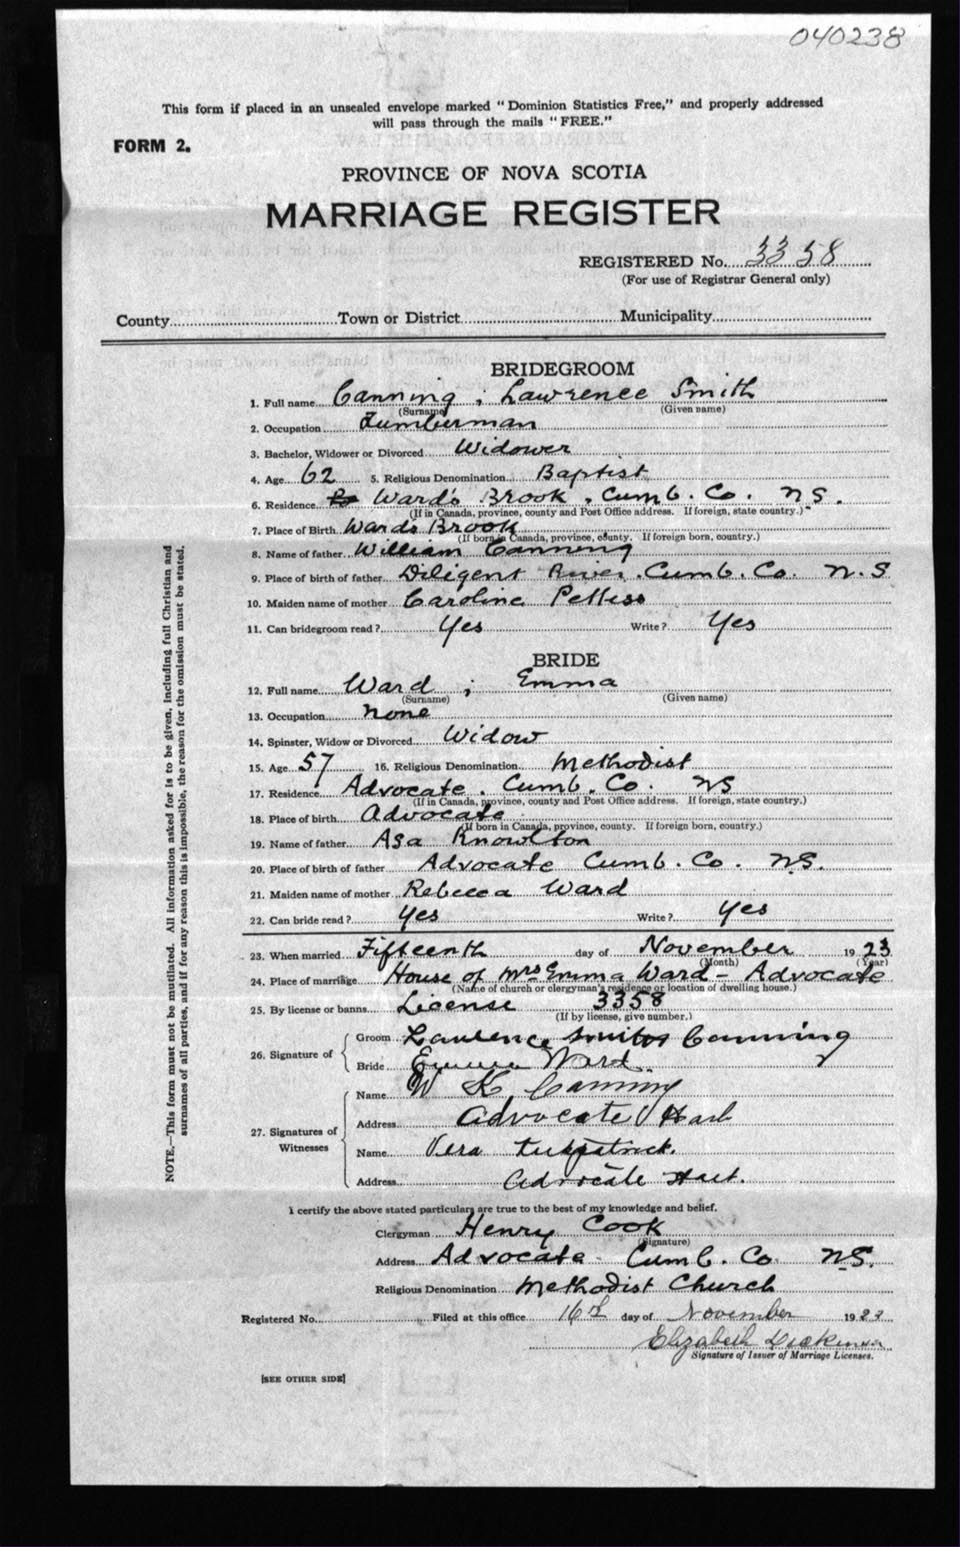 040238
This form if placed in an unsealed envelope marked "Dominion Statistics Free," and properly addressed
will pass through the mails "FREE."
FORM 2.
PROVINCE OF NOVA SCOTIA
MARRIAGE REGISTER
REGISTERED No. 3358
(For use of Registrar General only)
County Town or District Municipality
BRIDEGROOM
1. Full name Canning, Lawrence Smith
(Surname) (Given name)
2. Occupation Lumberman
3. Bachelor, Widower or Divorced Widower
4. Age 62 5. Religious Denomination Baptist
6. Residence Ward's Brook, Cumb. Co. NS.
(If in Canada, province, county and Post Office address. If foreign, state country.)
7. Place of Birth Wards Brook
(If born in Canada, province, county. If foreign born, country.)
8. Name of father William Canning
9. Place of birth of father Diligent River. Cumb. Co. N.S
10. Maiden name of mother Caroline
11. Can bridegroom read? Yes Write? Yes
BRIDE
12. Full name Ward ; Emma
(Surname) (Given name)
13. Occupation None
14. Spinster, Widow or Divorced Widow
15. Age 57 16. Religious Denomination Methodist
17. Residence Advocate. Cumb. Co. NS
(If in Canada, province, county and Post Office address. If foreign, state country.)
18. Place of birth Advocate
(If born in Canada, province, county. If foreign born, country.)
19. Name of father Asa Knowlton
20. Place of birth of father Advocate Cumb. Co. N.S.
21. Maiden name of mother Rebecca Ward
22. Can bride read? Yes Write? Yes
23. When married Fifteenth day of November 1923
(Month) (Year)
24. Place of marriage House of Mrs Emma Ward - Advocate
(Name of church or clergyman's residence or location of dwelling house.)
25. By license or banns License 3358
(If by license, give number.)
26. Signature of
Groom Lawrence Smith Canning
Bride Emma Ward.
27. Signatures of Witnesses
Name W K Canning
Address Advocate Harb
Name Vera Kirkpatrick.
Address Advocate
I certify the above stated particulars are true to the best of my knowledge and belief.
Clergyman Henry Cook
(Signature)
Address Advocate Cumb. Co. N.S.
Religious Denomination Methodist Church
Registered No. Filed at this office 16th day of November 1923
Elizabeth
Signature of Issuer of Marriage Licenses.
[SEE OTHER SIDE]
NOTE.—This form must not be mutilated. All information asked for is to be given, including full Christian and
surnames of all parties, and if for any reason this is impossible, the reason for the omission must be stated.